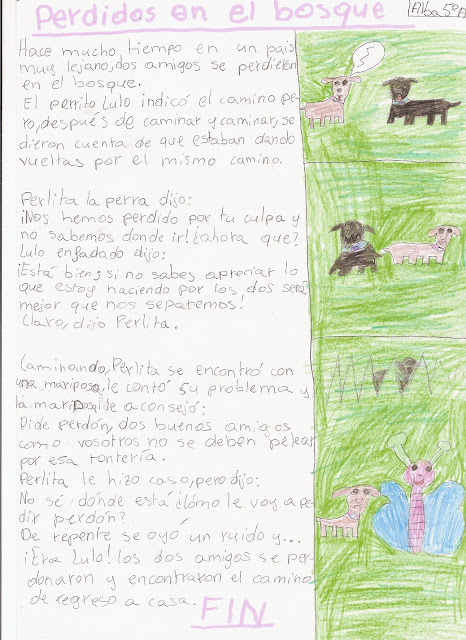 Perdidos en el bosque
Alba 5ºA
Hace mucho tiempo en un país
muy lejano, dos amigos se perdieron
en el bosque.
El perrito Lulo indicó el camino pe-
ro, después de caminar y caminar, se
dieron cuenta de que estaban dando
vueltas por el mismo camino.
Perlita la perra dijo:
¡Nos hemos perdido por tu culpa y
no sabemos donde ir! ¿ahora que?
Lulo enfadado dijo:
¡Está bien, si no sabes apreciar lo
que estoy haciendo por los dos será
mejor que nos separemos!
Claro, dijo Perlita.
Caminando, Perlita se encontró con
una mariposa, le contó su problema y
la mariposa le aconsejó:
Pide perdón, dos buenos amigos
como vosotros no se deben pelear
por esa tontería.
Perlita le hizo caso, pero dijo:
No sé dónde está ¿Cómo le voy a pe-
dir perdón?
De repente se oyó un ruido y...
¡Era Lulo! los dos amigos se per-
donaron y encontraron el camino
de regreso a casa.
FIN